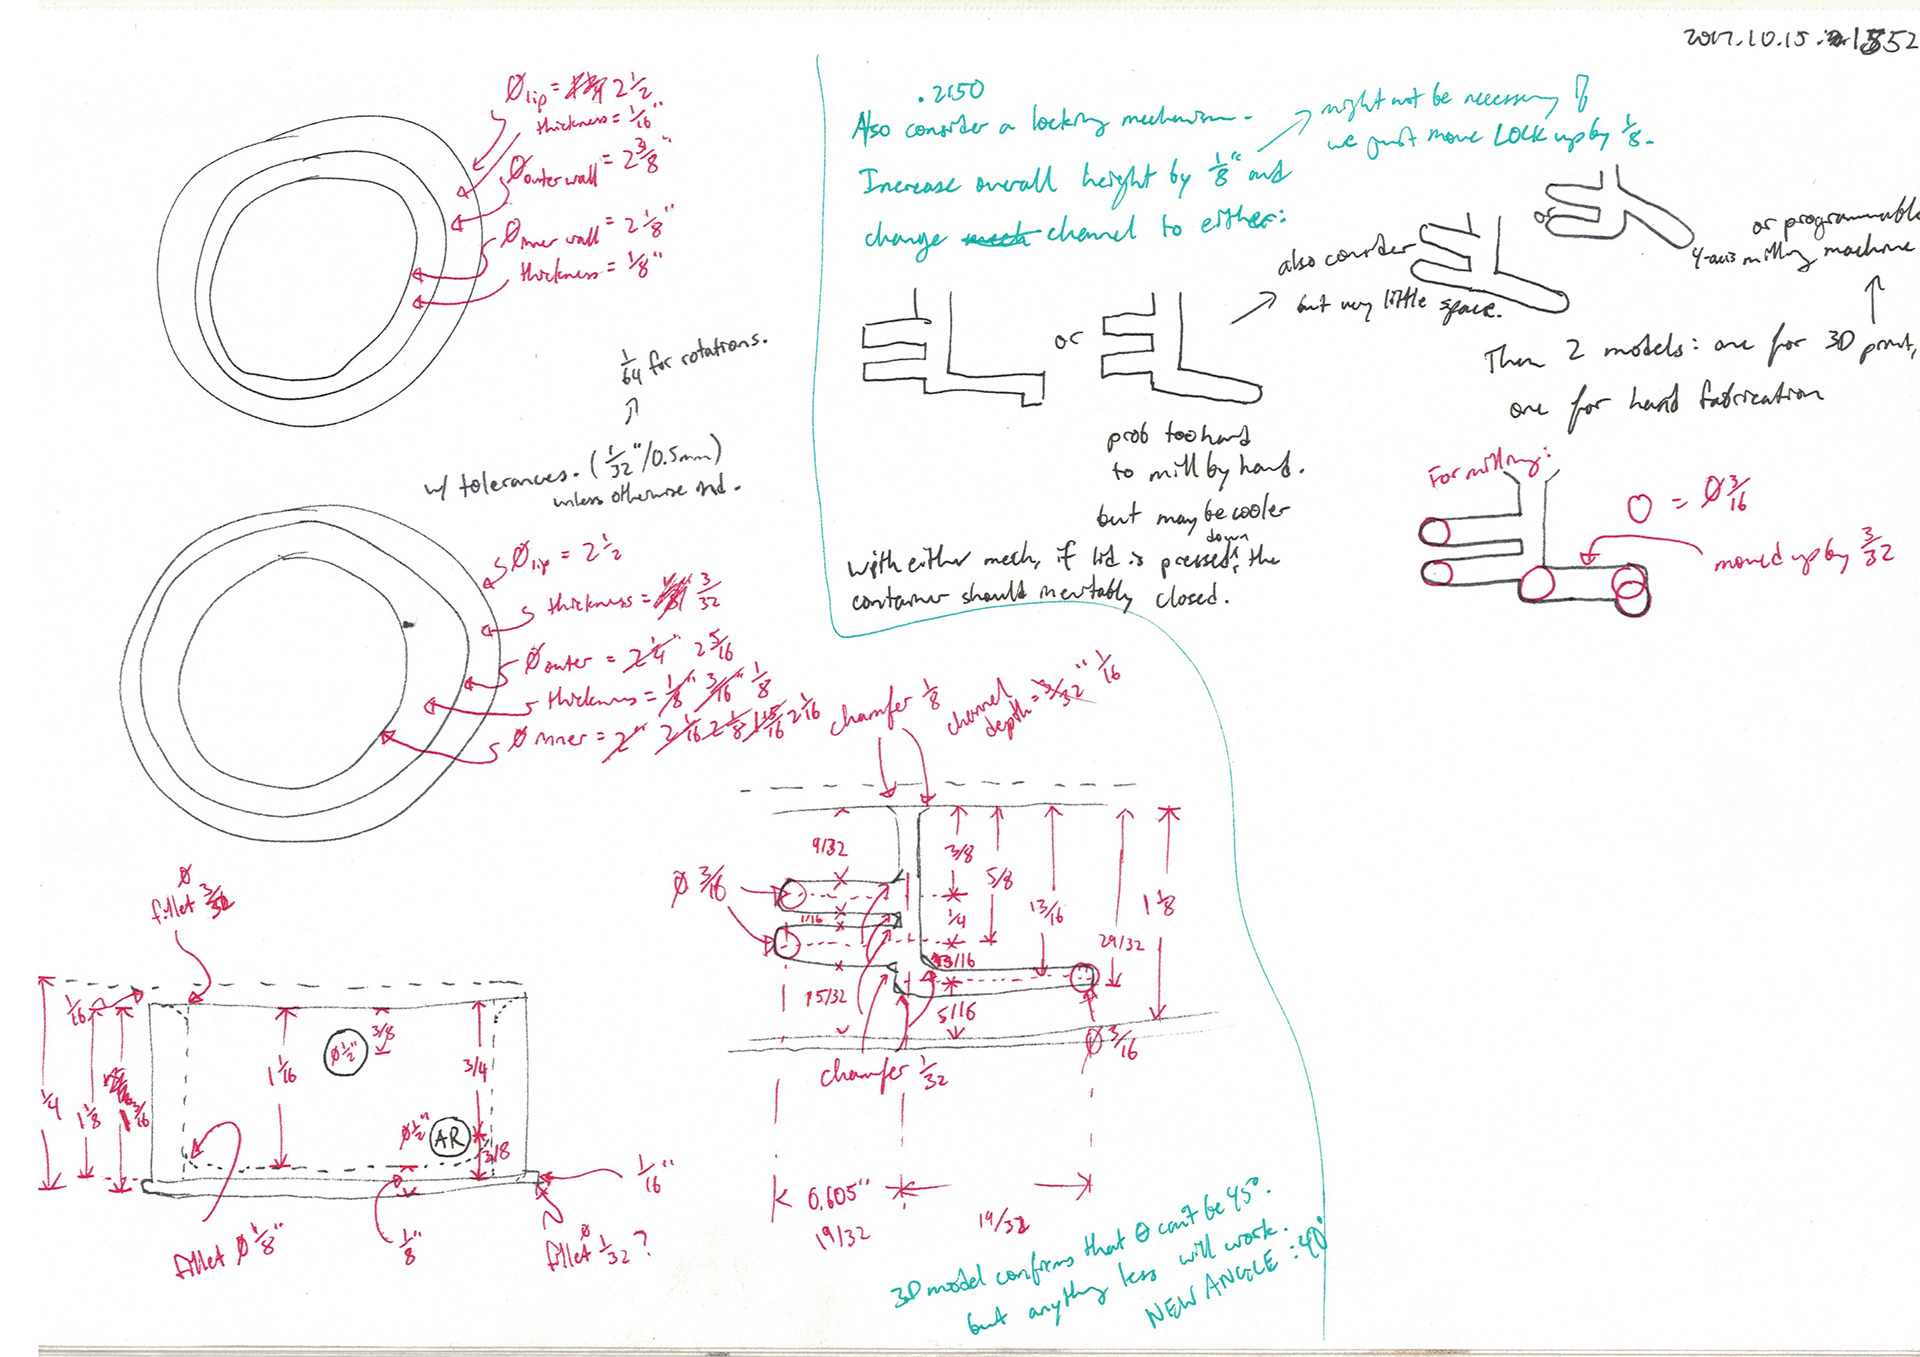 2017.10.15. 1552
Ø lip = 2 1/2"
thickness = 1/16"
Ø outer wall = 2 3/8"
Ø inner wall = 2 1/8"
thickness = 1/8"
1/64 for rotations.
w/ tolerances. (1/32"/0.5mm)
unless otherwise
Ø lip = 2 1/2
thickness = 3/32
Ø outer = 2 1/4" 2 5/16
thickness = 1/8" 3/16" 1/8
Ø inner = 2" 2 1/16 2 1/8 1 15/16 2 1/16
.2150
Also consider a locking mechanism.
might not be necessary if
we just move LOCK up by 1/8.
Increase overall height by 1/8" and
change mech channel to either:
or
also consider
but very little space.
or
or programmable
4-axis milling machine
Then 2 models: one for 3D print,
one for hand fabrication
prob too hard
to mill by hand.
but maybe cooler
with either mech, if lid is pressed down, the
container should inevitably closed.
For milling:
O = Ø 3/16
moved up by 3/32
chamfer 1/8
channel
depth = 3/32" 1/16
9/32
3/8
5/8
13/16
29/32
1 1/8
Ø 3/16
1/16
1/4
3/16
15/32
5/16
Ø 3/16
chamfer 1/32
0.605"
19/32
19/32
3D model confirms that θ can't be 45°.
but anything less will work.
NEW ANGLE: 40°
Ø
fillet 3/32
1/16
1/4
1 1/8
1 3/16
1 1/16
Ø 1/2"
3/8
3/4
Ø 1/2"
AR
3/8
1/16"
fillet Ø 1/8"
1/8"
Ø
fillet 1/32?